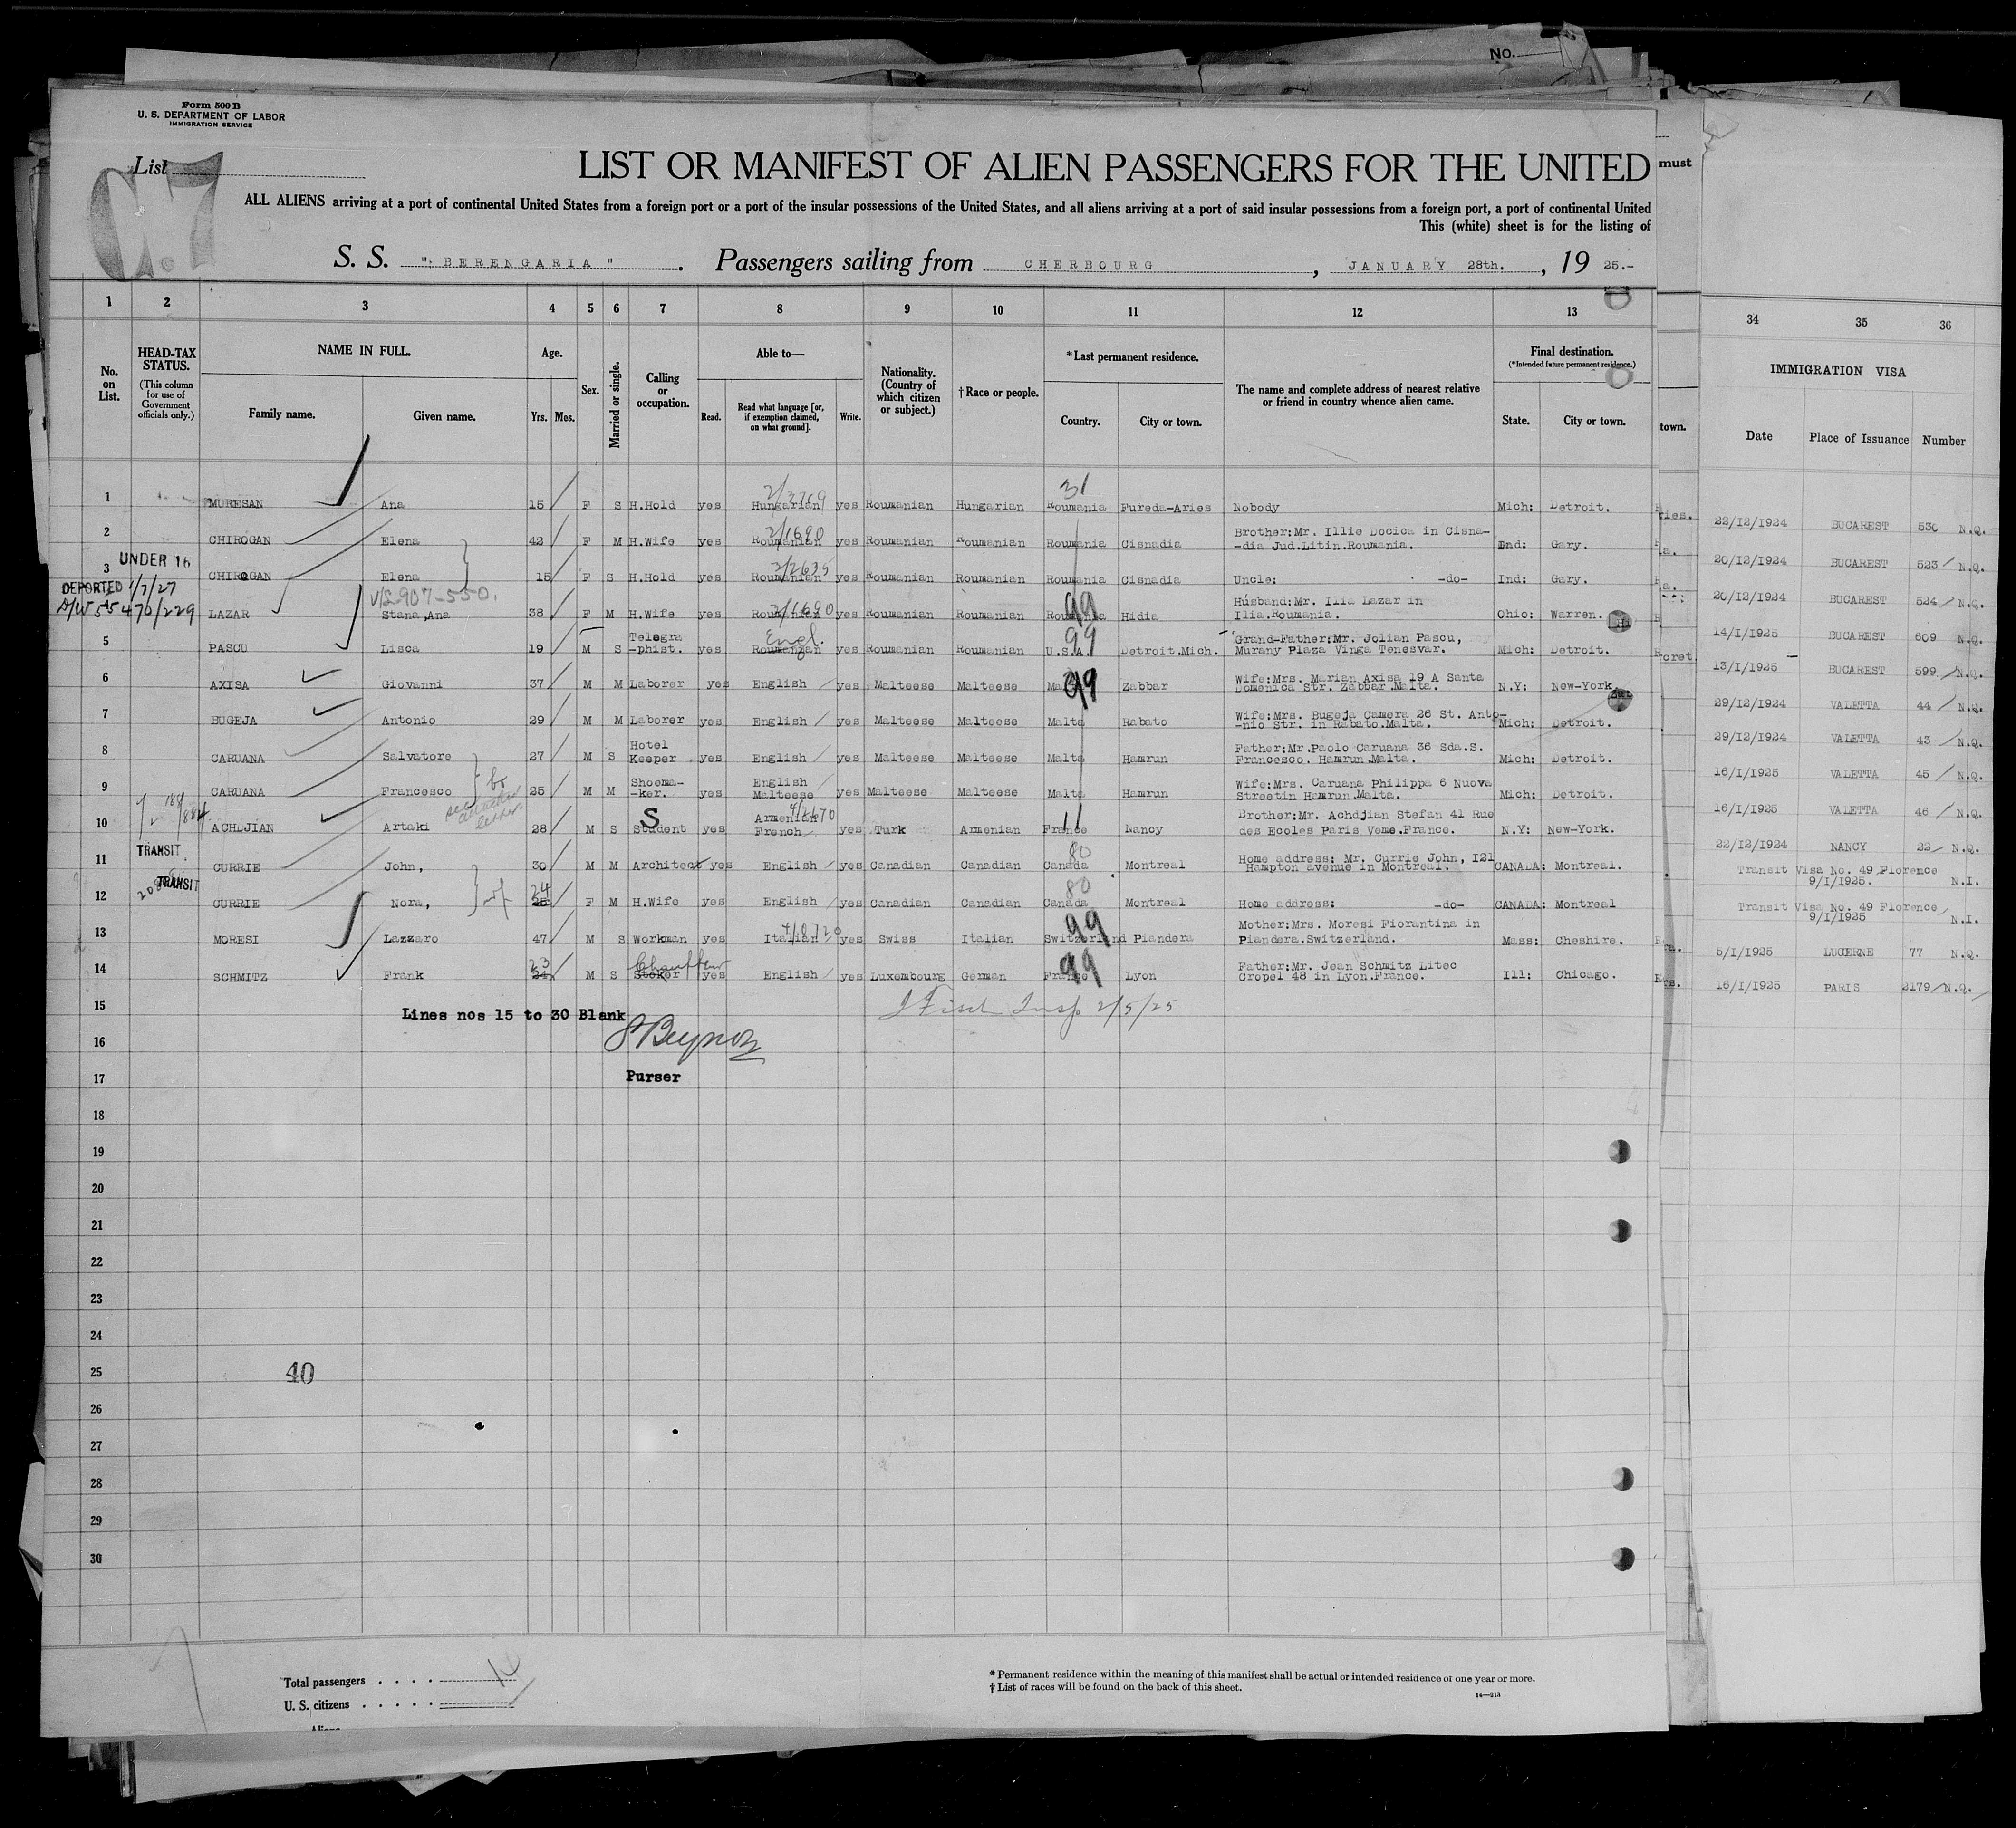 No.
Form 500 B
U. S. DEPARTMENT OF LABOR
IMMIGRATION SERVICE
List
C.7
LIST OR MANIFEST OF ALIEN PASSENGERS FOR THE UNITED
must
ALL ALIENS arriving at a port of continental United States from a foreign port or a port of the insular possessions of the United States, and all aliens arriving at a port of said insular possessions from a foreign port, a port of continental United
This (white) sheet is for the listing of
S. S. "BERENGARIA". Passengers sailing from CHERBOURG, JANUARY 28th., 19 25.-
1 2 3 4 5 6 7 8 9 10 11 12 13 34 35 36
No. on List.
HEAD-TAX STATUS.
(This column for use of Government officials only.)
NAME IN FULL.
Family name. Given name.
Age.
Yrs. Mos.
Sex.
Married or single.
Calling or occupation.
Able to—
Read. Read what language [or, if exemption claimed, on what ground]. Write.
Nationality. (Country of which citizen or subject.)
†Race or people.
*Last permanent residence.
Country. City or town.
The name and complete address of nearest relative or friend in country whence alien came.
Final destination.
(*Intended future permanent residence.)
State. City or town.
town.
IMMIGRATION VISA
Date Place of Issuance Number
1 MURESAN Ana 15 F S H.Hold yes Hungarian 2/3769 yes Roumanian Hungarian Roumania 31 Fureda-Aries Nobody Mich: Detroit. 22/12/1924 BUCAREST 530 N.Q.
2 CHIROGAN Elena 42 F M H.Wife yes Roumanian 2/1690 yes Roumanian Roumanian Roumania Cisnadia Brother:Mr. Illie Docica in Cisna-
-dia Jud.Litin.Roumania. Ind: Gary. 20/12/1924 BUCAREST 523 N.Q.
UNDER 16
3 CHIROGAN Elena 15 F S H.Hold yes Roumanian 2/2635 yes Roumanian Roumanian Roumania Cisnadia Uncle: -do- Ind: Gary. 20/12/1924 BUCAREST 524 N.Q.
DEPORTED 1/7/27
V/L-907-550.
55470/229 LAZAR Stana,Ana 38 F M H.Wife yes Roumanian yes Roumanian Roumanian Roumania 99 Hidia Husband:Mr. Ilia Lazar in
Ilia.Roumania. Ohio: Warren. 14/I/1925 BUCAREST 609 N.Q.
5 PASCU Lisca 19 M S Telegra
-phist. yes Roumanian Engl. yes Roumanian Roumanian U.S.A. 99 Detroit.Mich. Grand-Father:Mr. Jolian Pascu,
Murany Plaza Vinga Tenesvar. Mich: Detroit. 13/I/1925 BUCAREST 599 N.Q.
6 AXISA Giovanni 37 M M Laborer yes English yes Malteese Malteese 99 Zabbar Wife:Mrs. Marian Axisa 19 A Santa
Domenica Str. Zabbar.Malta. N.Y: New-York. 29/12/1924 VALETTA 44 N.Q.
7 BUGEJA Antonio 29 M M Laborer yes English yes Malteese Malteese Malta Rabato Wife:Mrs. Bugeja Camera 26 St. Anto-
-nio Str. in Rabato.Malta. Mich: Detroit. 29/12/1924 VALETTA 43 N.Q.
8 CARUANA Salvatore 27 M S Hotel
Keeper yes English yes Malteese Malteese Malta Hamrun Father:Mr.Paolo Caruana 36 Sda.S.
Francesco. Hamrun.Malta. Mich: Detroit. 16/I/1925 VALETTA 45 N.Q.
9 CARUANA Francesco 25 M M Shoema-
-ker. yes English
Malteese yes Malteese Malteese Malta Hamrun Wife:Mrs. Caruana Philippa 6 Nuova
Streetin Hamrun.Malta. Mich: Detroit. 16/I/1925 VALETTA 46 N.Q.
10 ACHDJIAN Artaki 28 M S Student S yes Armenian
French yes Turk Armenian France 11 Nancy Brother:Mr. Achdjian Stefan 41 Rue
des Ecoles Paris Veme.France. N.Y: New-York. 22/12/1924 NANCY 22 N.Q.
TRANSIT
11 CURRIE John, 30 M M Architect yes English yes Canadian Canadian Canada 80 Montreal Home address: Mr. Currie John, I21
Hampton avenue in Montreal. CANADA: Montreal. Transit Visa No. 49 Florence
9/I/1925. N.I.
TRANSIT
12 CURRIE Nora, 24 F M H.Wife yes English yes Canadian Canadian Canada 80 Montreal Home address: -do- CANADA: Montreal Transit Visa No. 49 Florence
9/I/1925 N.I.
13 MORESI Lazzaro 47 M S Workman yes Italian yes Swiss Italian Switzerland 99 Piandera Mother:Mrs. Moresi Fiorantina in
Piandera.Switzerland. Mass: Cheshire. 5/I/1925 LUCERNE 77 N.Q.
14 SCHMITZ Frank 23 24 M S Stoker Chauffeur yes English yes Luxembourg German France 99 Lyon Father:Mr. Jean Schmitz Litec
Cropel 48 in Lyon.France. Ill: Chicago. 16/I/1925 PARIS 2179 N.Q.
15
Lines nos 15 to 30 Blank
Insp 2/5/25
16
17 Purser
18
19
20
21
22
23
24
25
40
26
27
28
29
30
Total passengers
U. S. citizens
*Permanent residence within the meaning of this manifest shall be actual or intended residence of one year or more.
†List of races will be found on the back of this sheet.
14—213